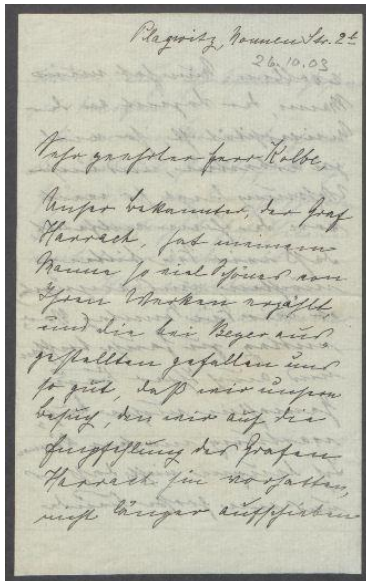 Plagwitz, Nonnen Str. 2b
26.10.03
Sehr geehrter Herr Kolbe,
Unser Bekannter, der Graf
Harrach, hat meinem
Manne so viel Schönes von
Ihren Werken erzählt,
und die bei Beyer aus-
gestellten gefallen uns
so gut, daß wir unsern
Besuch, den wir auf die
Empfehlung des Grafen
Harrach hin vorhatten,
nicht länger aufschieben